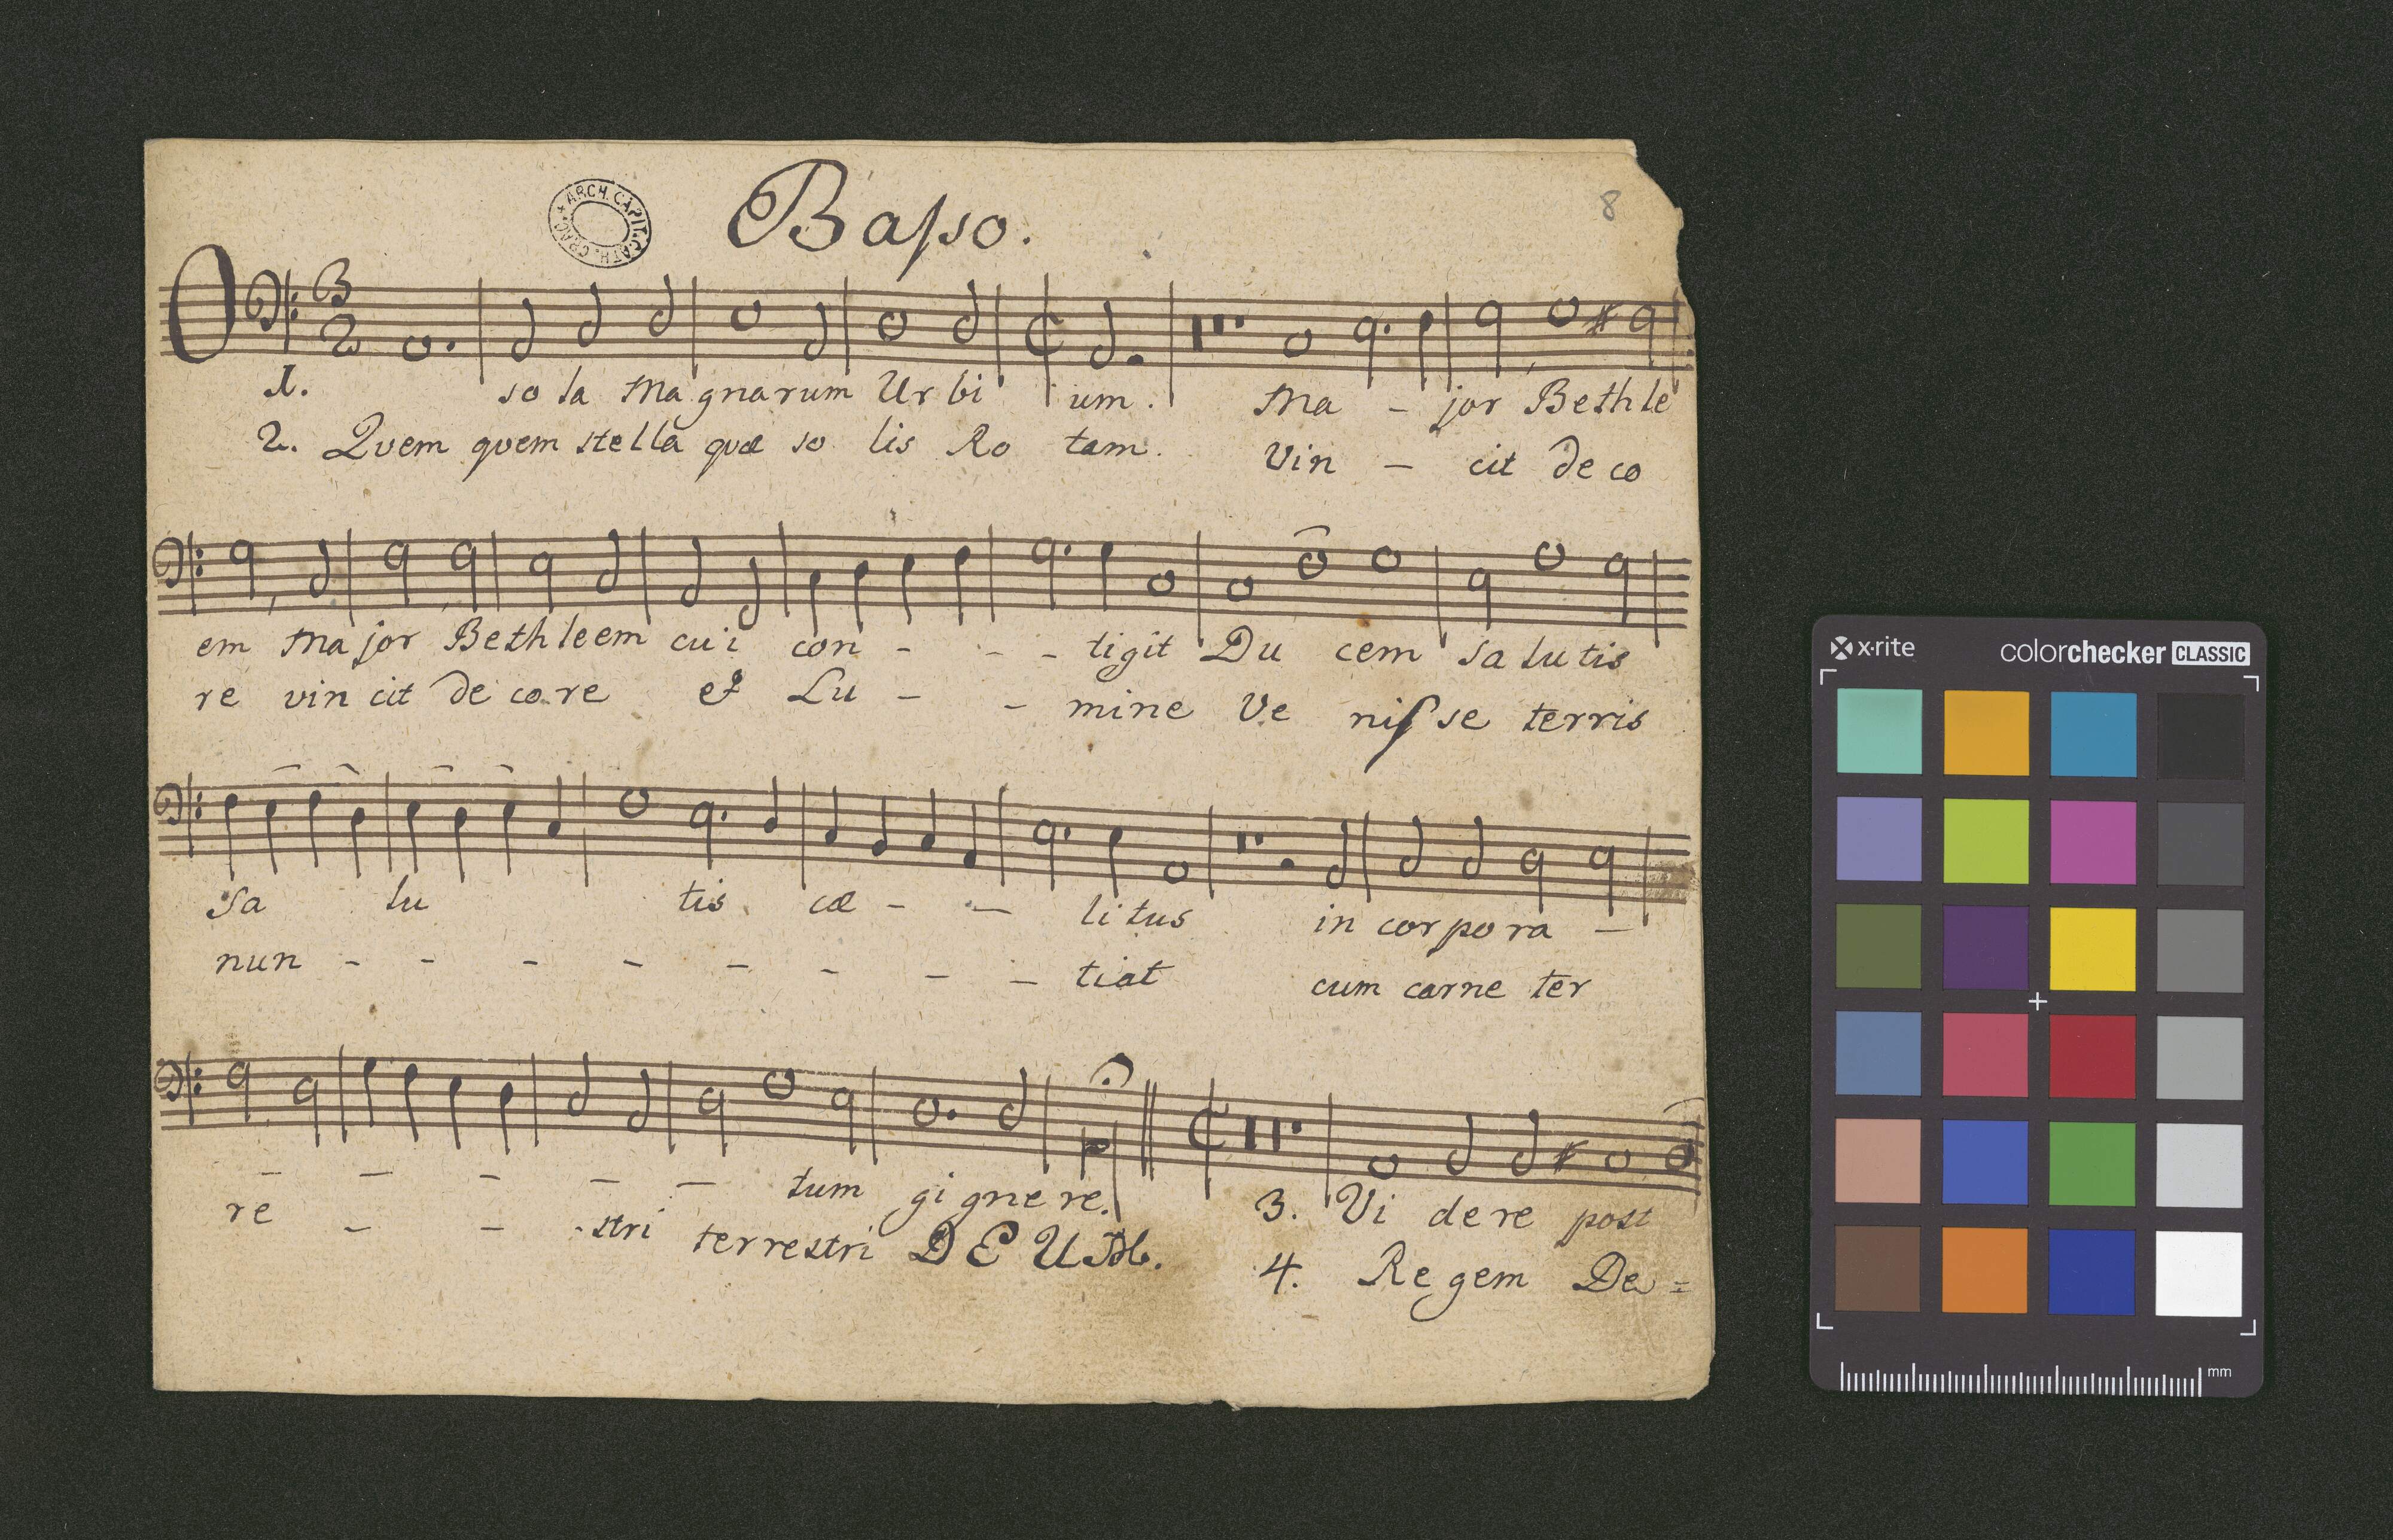 Basso.
ARCH. CAPIT. CATH. CRAC.
8
O
3
2
1. so la Ma gnarum Ur bi um. Ma - jor Beth le
2. Quem quem stella quæ so lis Ro tam. Vin - cit de co
em Ma jor Bethleem cui con - - - tigit Du cem sa lutis
re vin cit de co re et Lu - - mine Ve nisse terris
Sa lu tis cæ - - li tus in cor po ra -
nun - - - - - - - - tiat cum carne ter
- - - - - tum gi gne re. 3. Vi dere post
re - - - stri terrestri DEUM. 4. Re gem De =
x-rite
colorchecker CLASSIC
mm